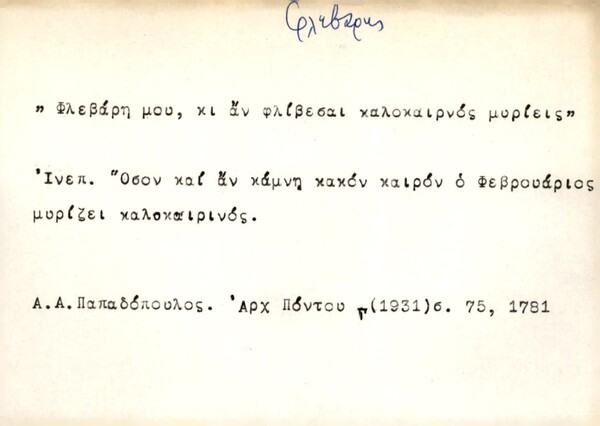 Φλεβάρης
„ Φλεβάρη μου, κι ἄν φλίβεσαι καλοκαιρνός μυρίεις"
Ἰνεπ. Ὅσον καί ἄν κάμνη κακόν καιρόν ὁ Φεβρουάριος
μυρίζει καλοκαιρινός.
Α.Α.Παπαδόπουλος. Ἀρχ Πόντου (1931)σ. 75, 1781